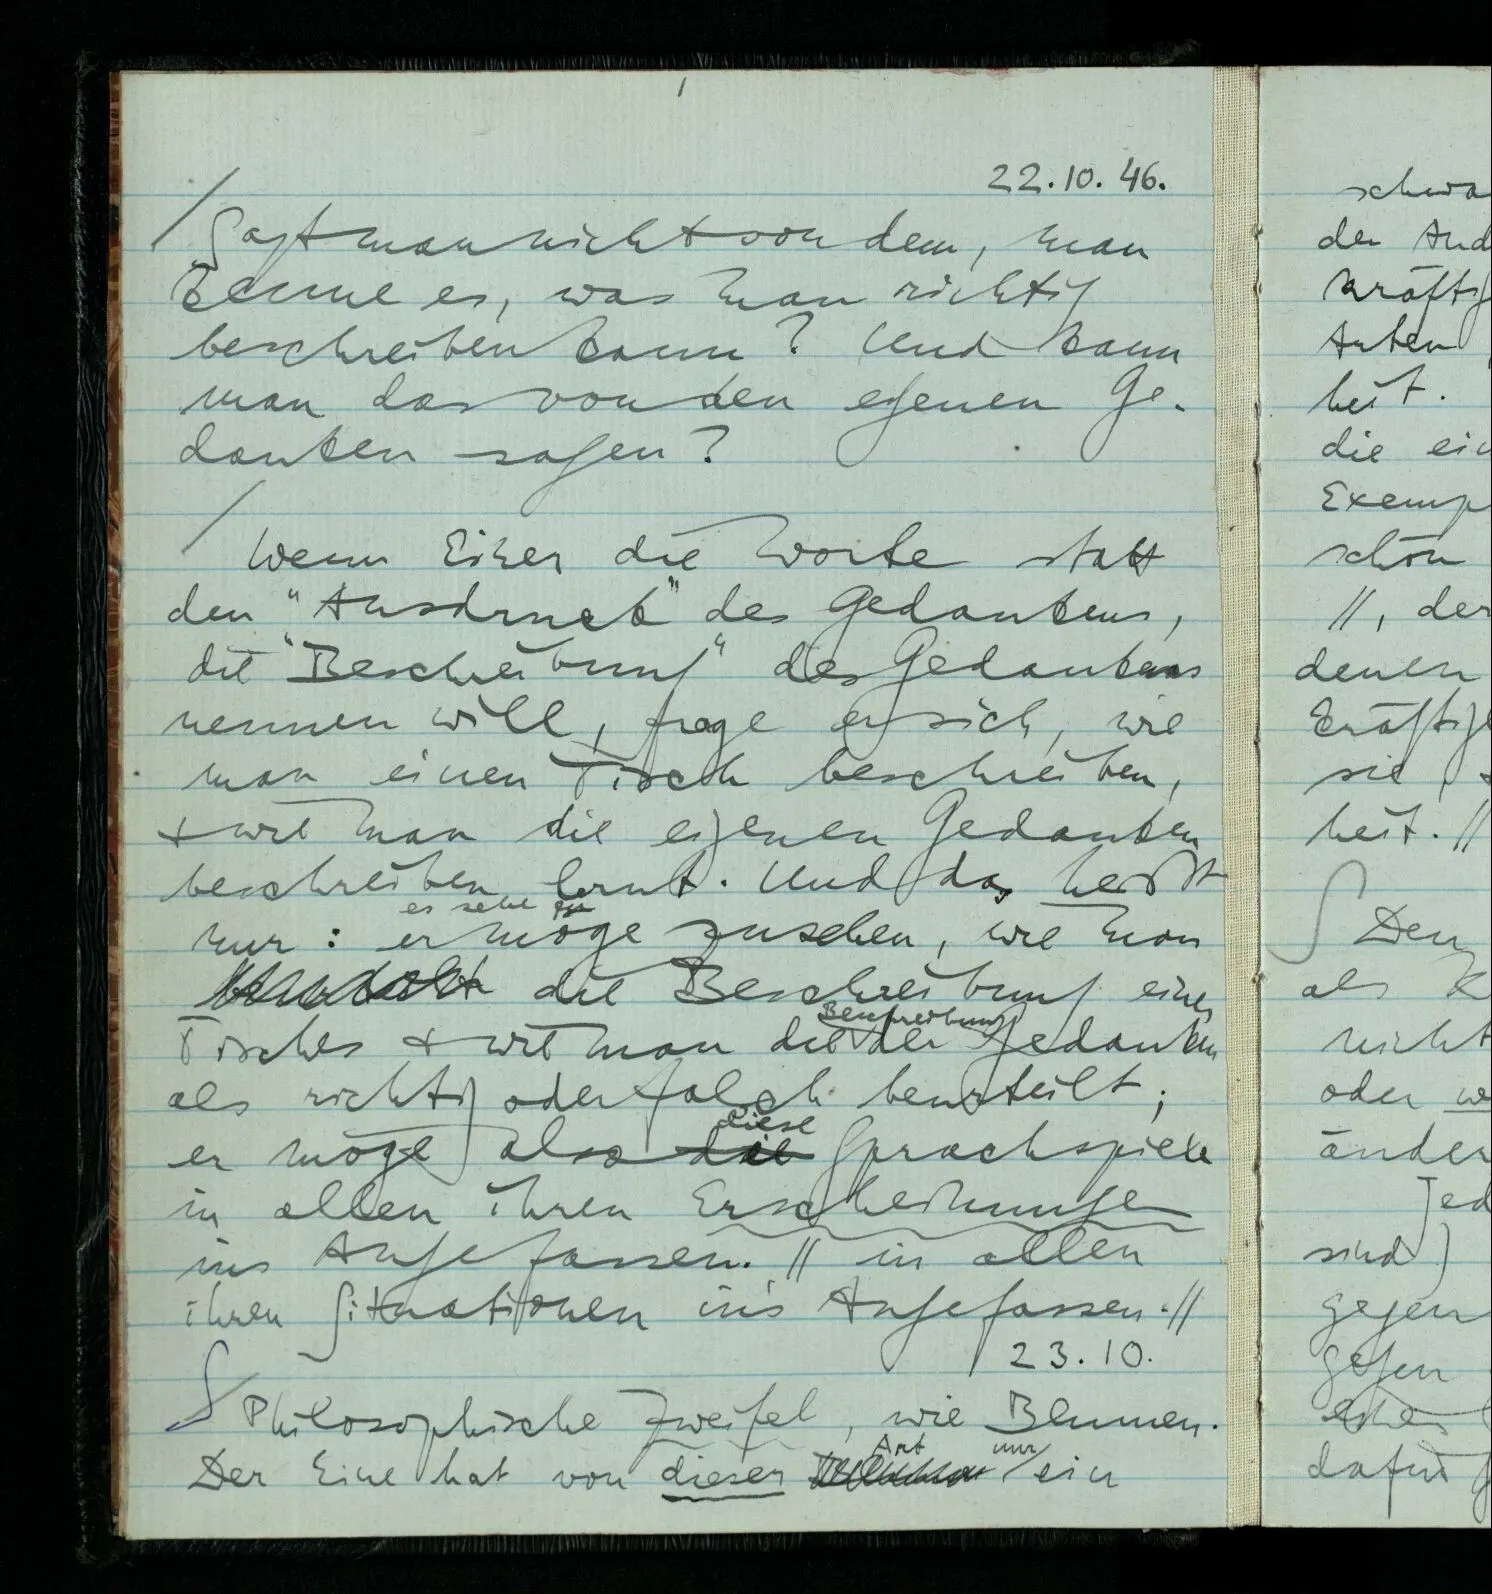 22.10.46.
/ Sagt man nicht von dem, man
kenne es, was man richtig
beschreiben kann? Und kann
man das von den eigenen Ge-
danken sagen?
/ Wenn Einer die Worte statt
den "Ausdruck" des Gedankens,
die "Beschreibung" des Gedankens
nennen will, frage er sich, wie
man einen Tisch beschreiben,
+ wie man die eigenen Gedanken
beschreiben lernt. Und das heißt
es sehe
nur: er möge zusehen, wie man
die Beschreibung eines
Beschreibung
Tisches + wie man die der Gedanken
als richtig oder falsch beurteilt;
diese
er möge also die Sprachspiele
in allen ihren Erscheinungen
ins Auge fassen. // in allen
ihren Situationen in's Auge fassen. //
23.10.
Philosophische Zweifel, wie Blumen.
Art nur
Der Eine hat von dieser ein
schwa
der And
kräftig
Arten
heit.
die ein
Exemp
schön
//, der
denen
kräftige
sie,
heit. //
Den
als
nicht
oder w
änder
Jed
sind)
gegen
gegen
dafür